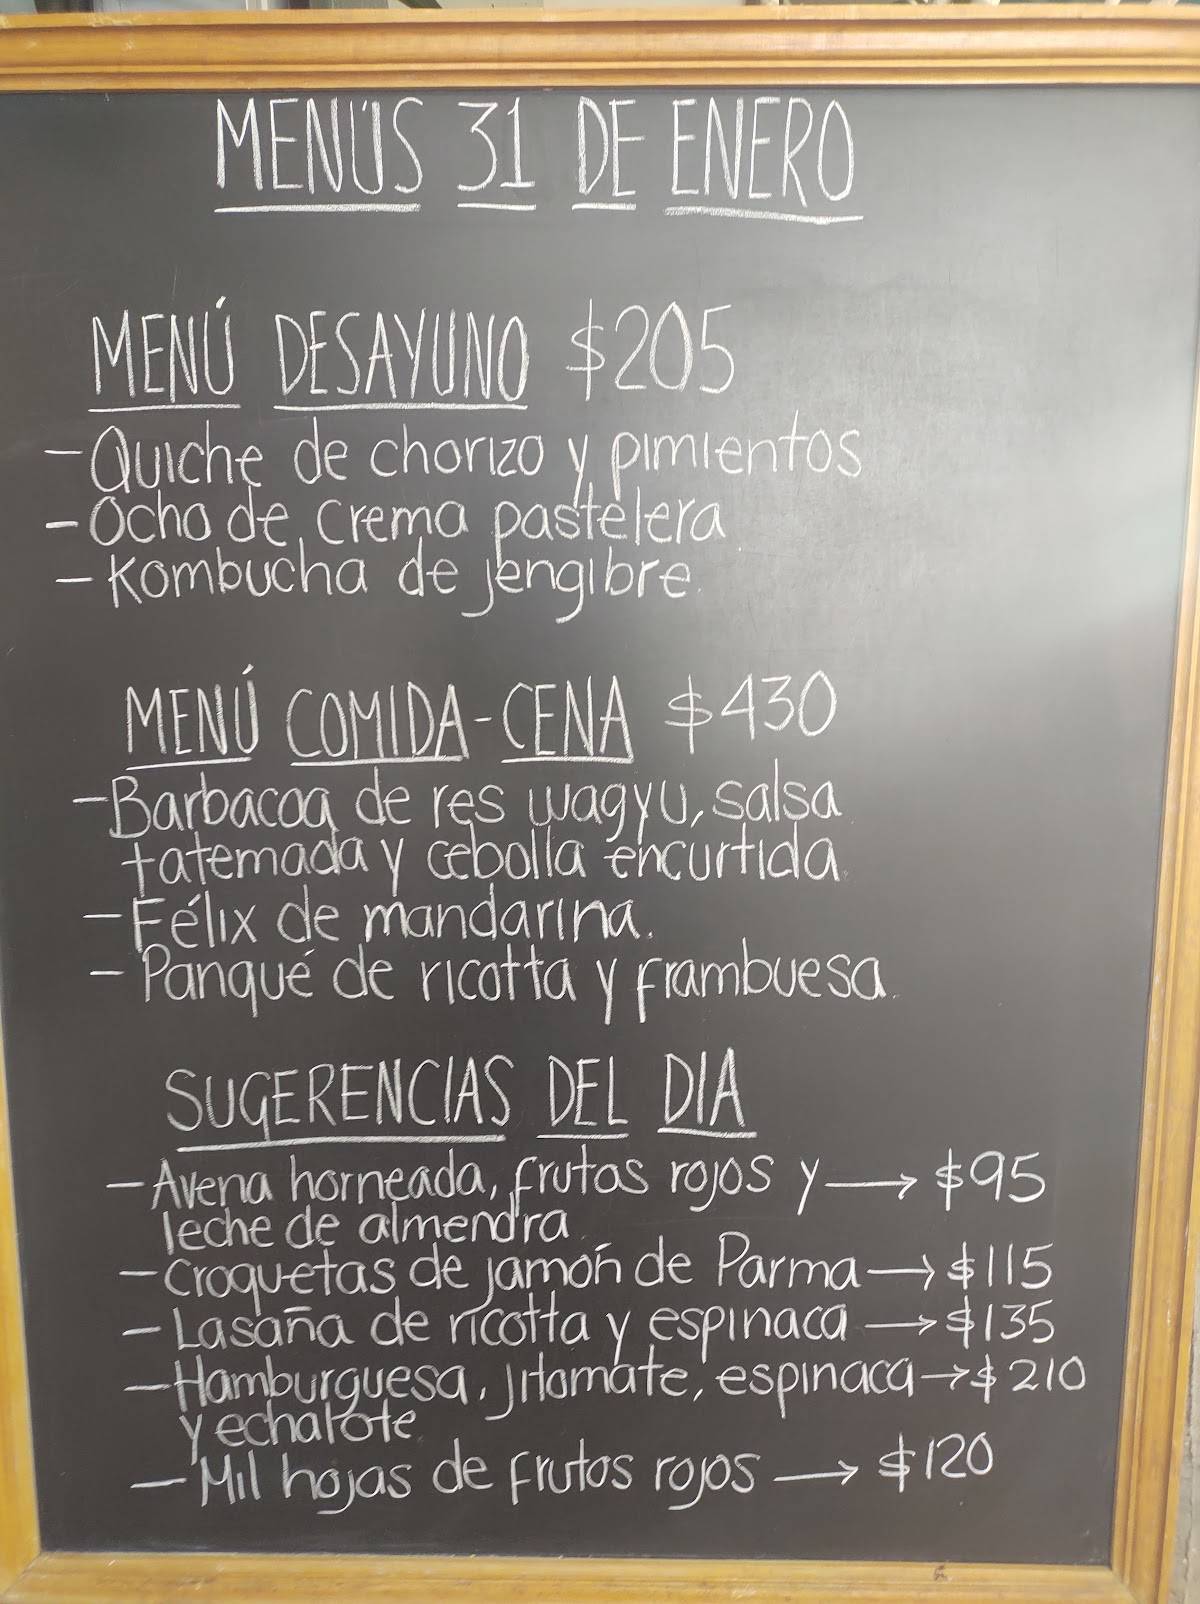 MENÚS 31 DE ENERO
MENÚ DESAYUNO $205
- Quiche de chorizo y pimientos
- Ocho de crema pastelera
- Kombucha de jengibre.
MENÚ COMIDA-CENA $430
- Barbacoa de res wagyu, salsa
tatemada y cebolla encurtida.
- Félix de mandarina.
- Panqué de ricotta y frambuesa.
SUGERENCIAS DEL DIA
- Avena horneada, frutos rojos y → $95
leche de almendra.
- Croquetas de jamón de Parma → $115
- Lasaña de ricotta y espinaca → $135
- Hamburguesa, jitomate, espinaca → $210
y echalote
- Mil hojas de frutos rojos → $120